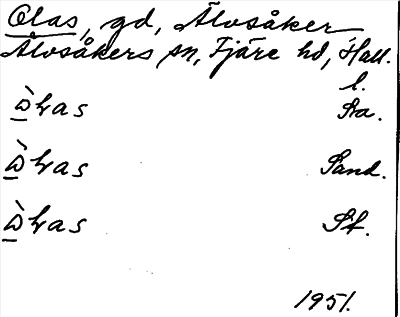 Olas, gd, Älvsåker
Älvsåkers sn, Fjäre hd, Hall.
l.
as Aa.
as Sand.
as St.
1951.